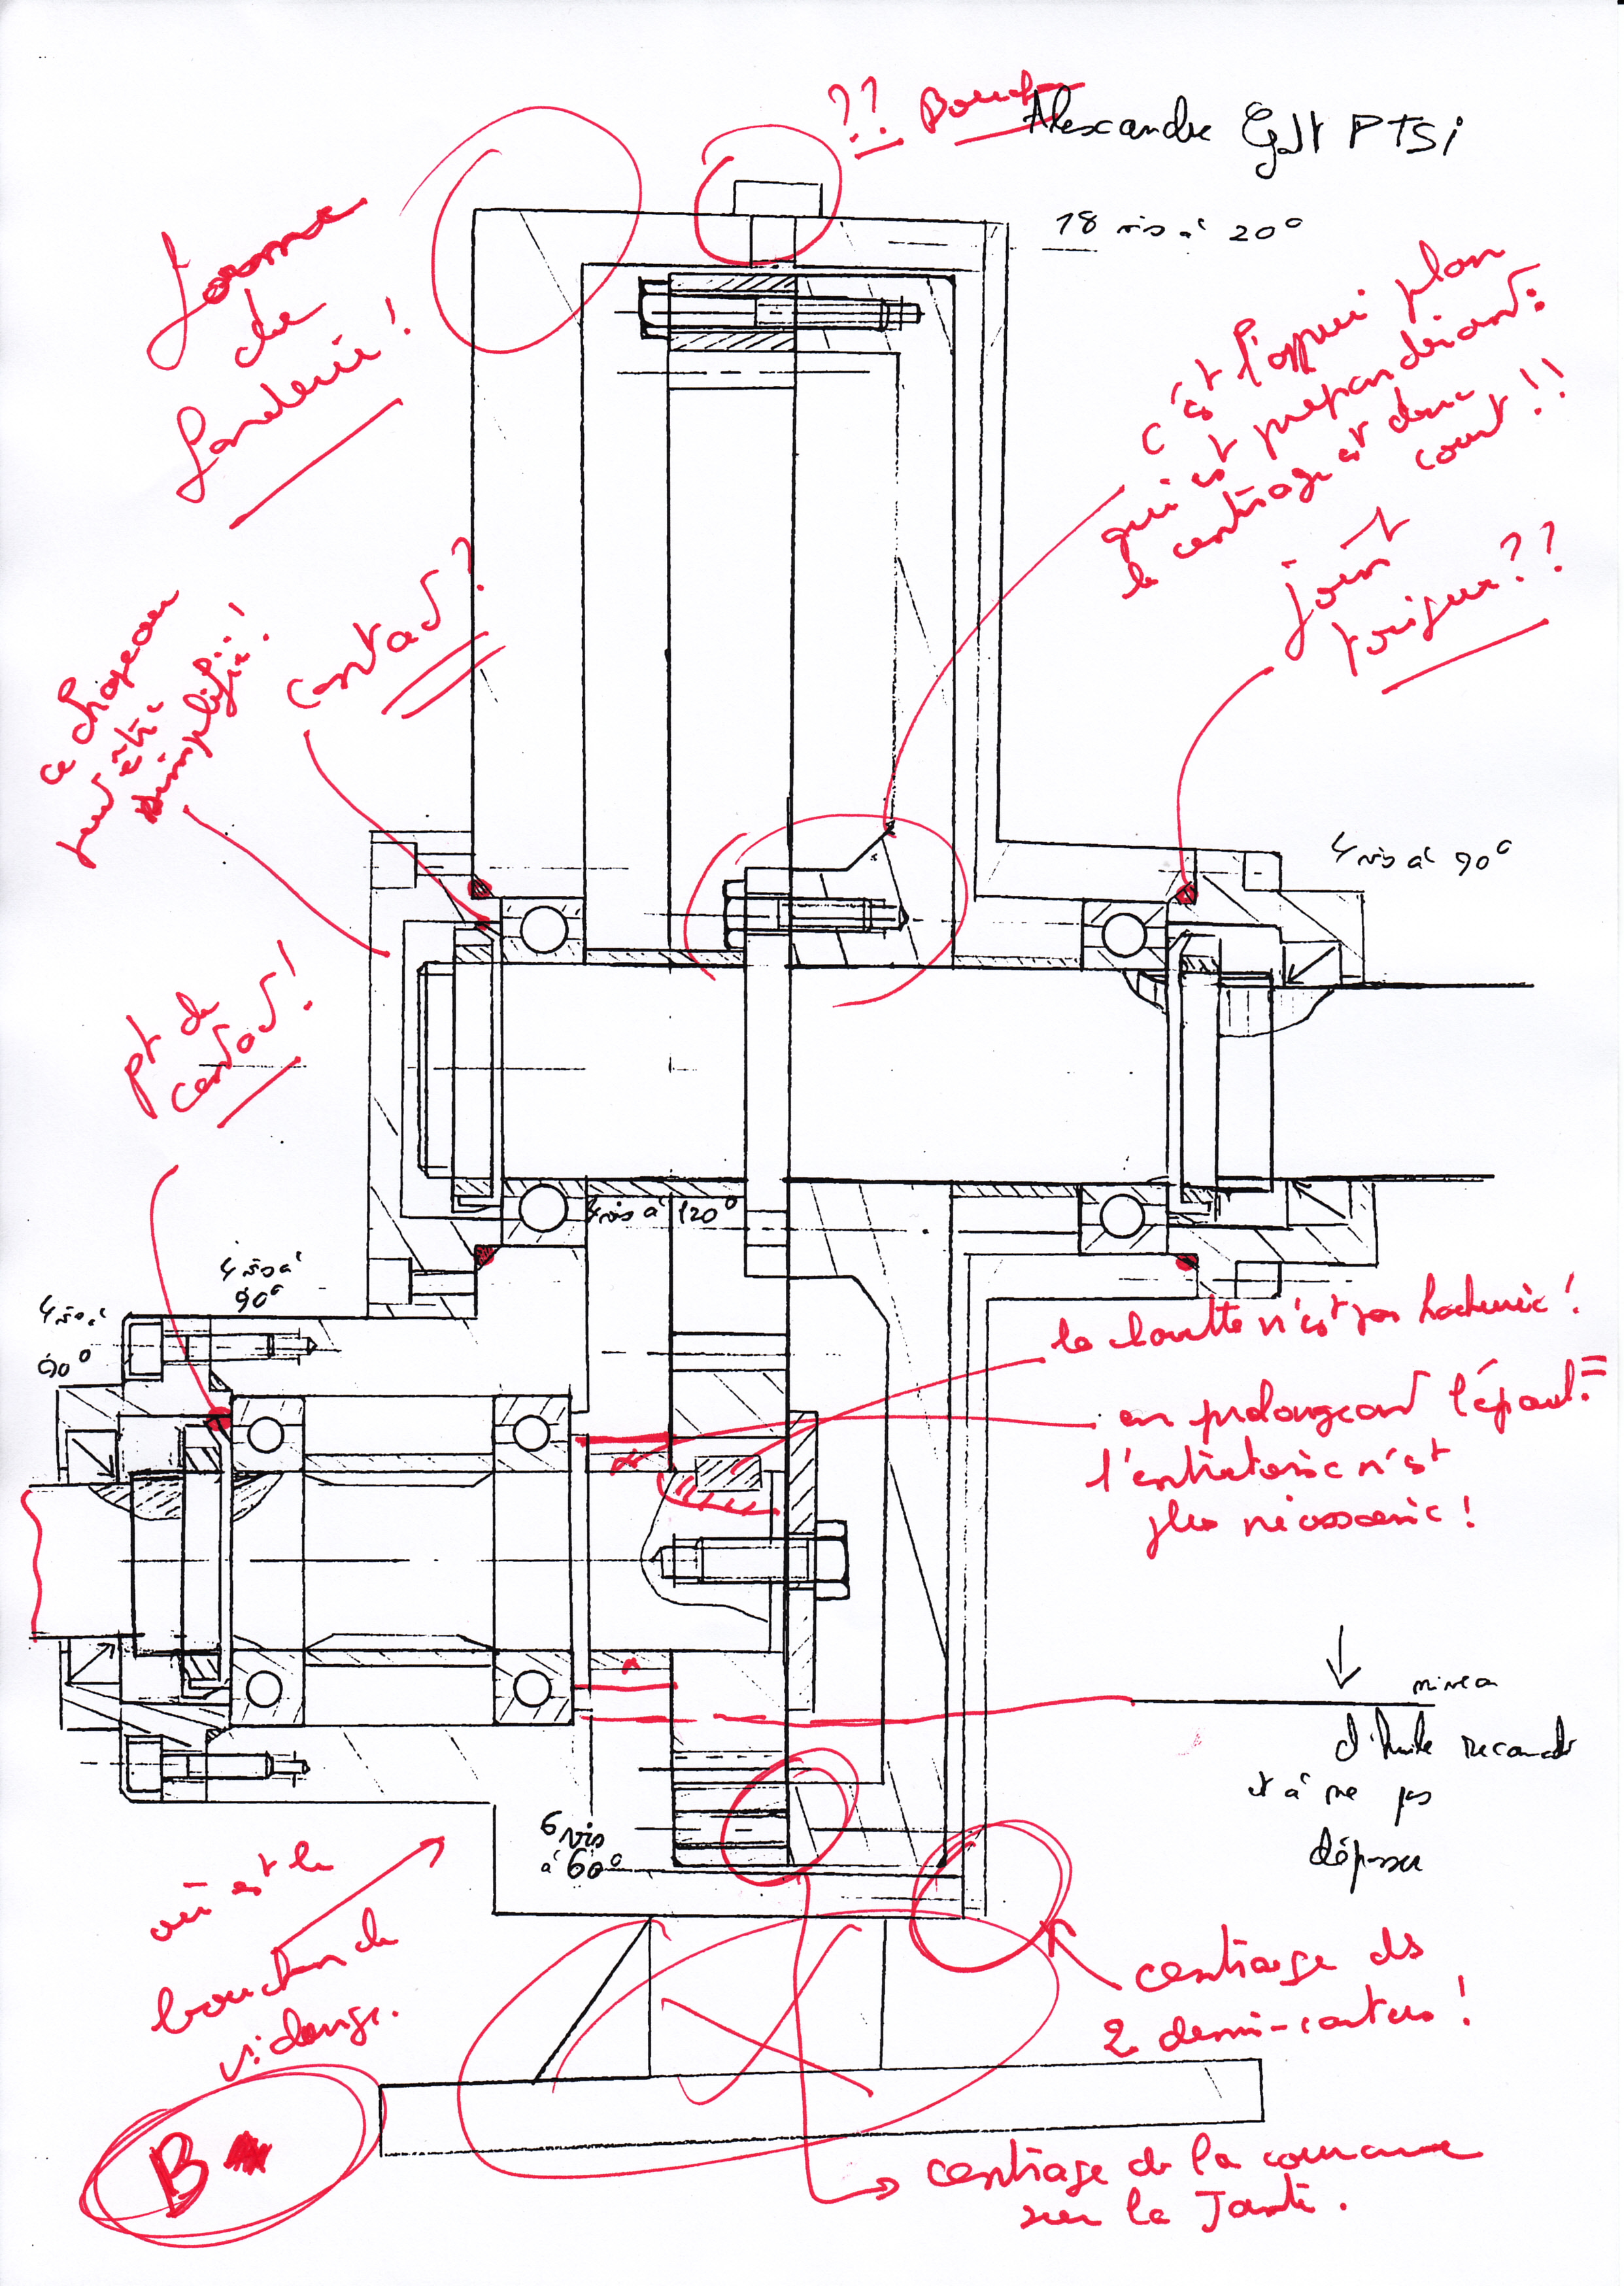 ?? Bouchon
Alexandre GJt PTSi
18 vis à 20°
forme
de
fonderie !
c'est l'appui plan
qui est prépondérant :
le centrage est donc
court !!
joint
torique ??
contact ?
ce chapeau
peut être
simplifié !
4 vis à 90°
pt de
contact !
4 vis à 120°
4 vis à
90°
4 vis à
90°
la clavette n'est pas hachurée !
en prolongeant l'épaul=
l'entretoise n'est
plus nécessaire !
niveau
d'huile recommandé
et à ne pas
dépasser
6 vis
à 60°
où est le
bouchon de
vidange.
centrage ds
2 demi-carters !
B
centrage de la couronne
sur la Jante.